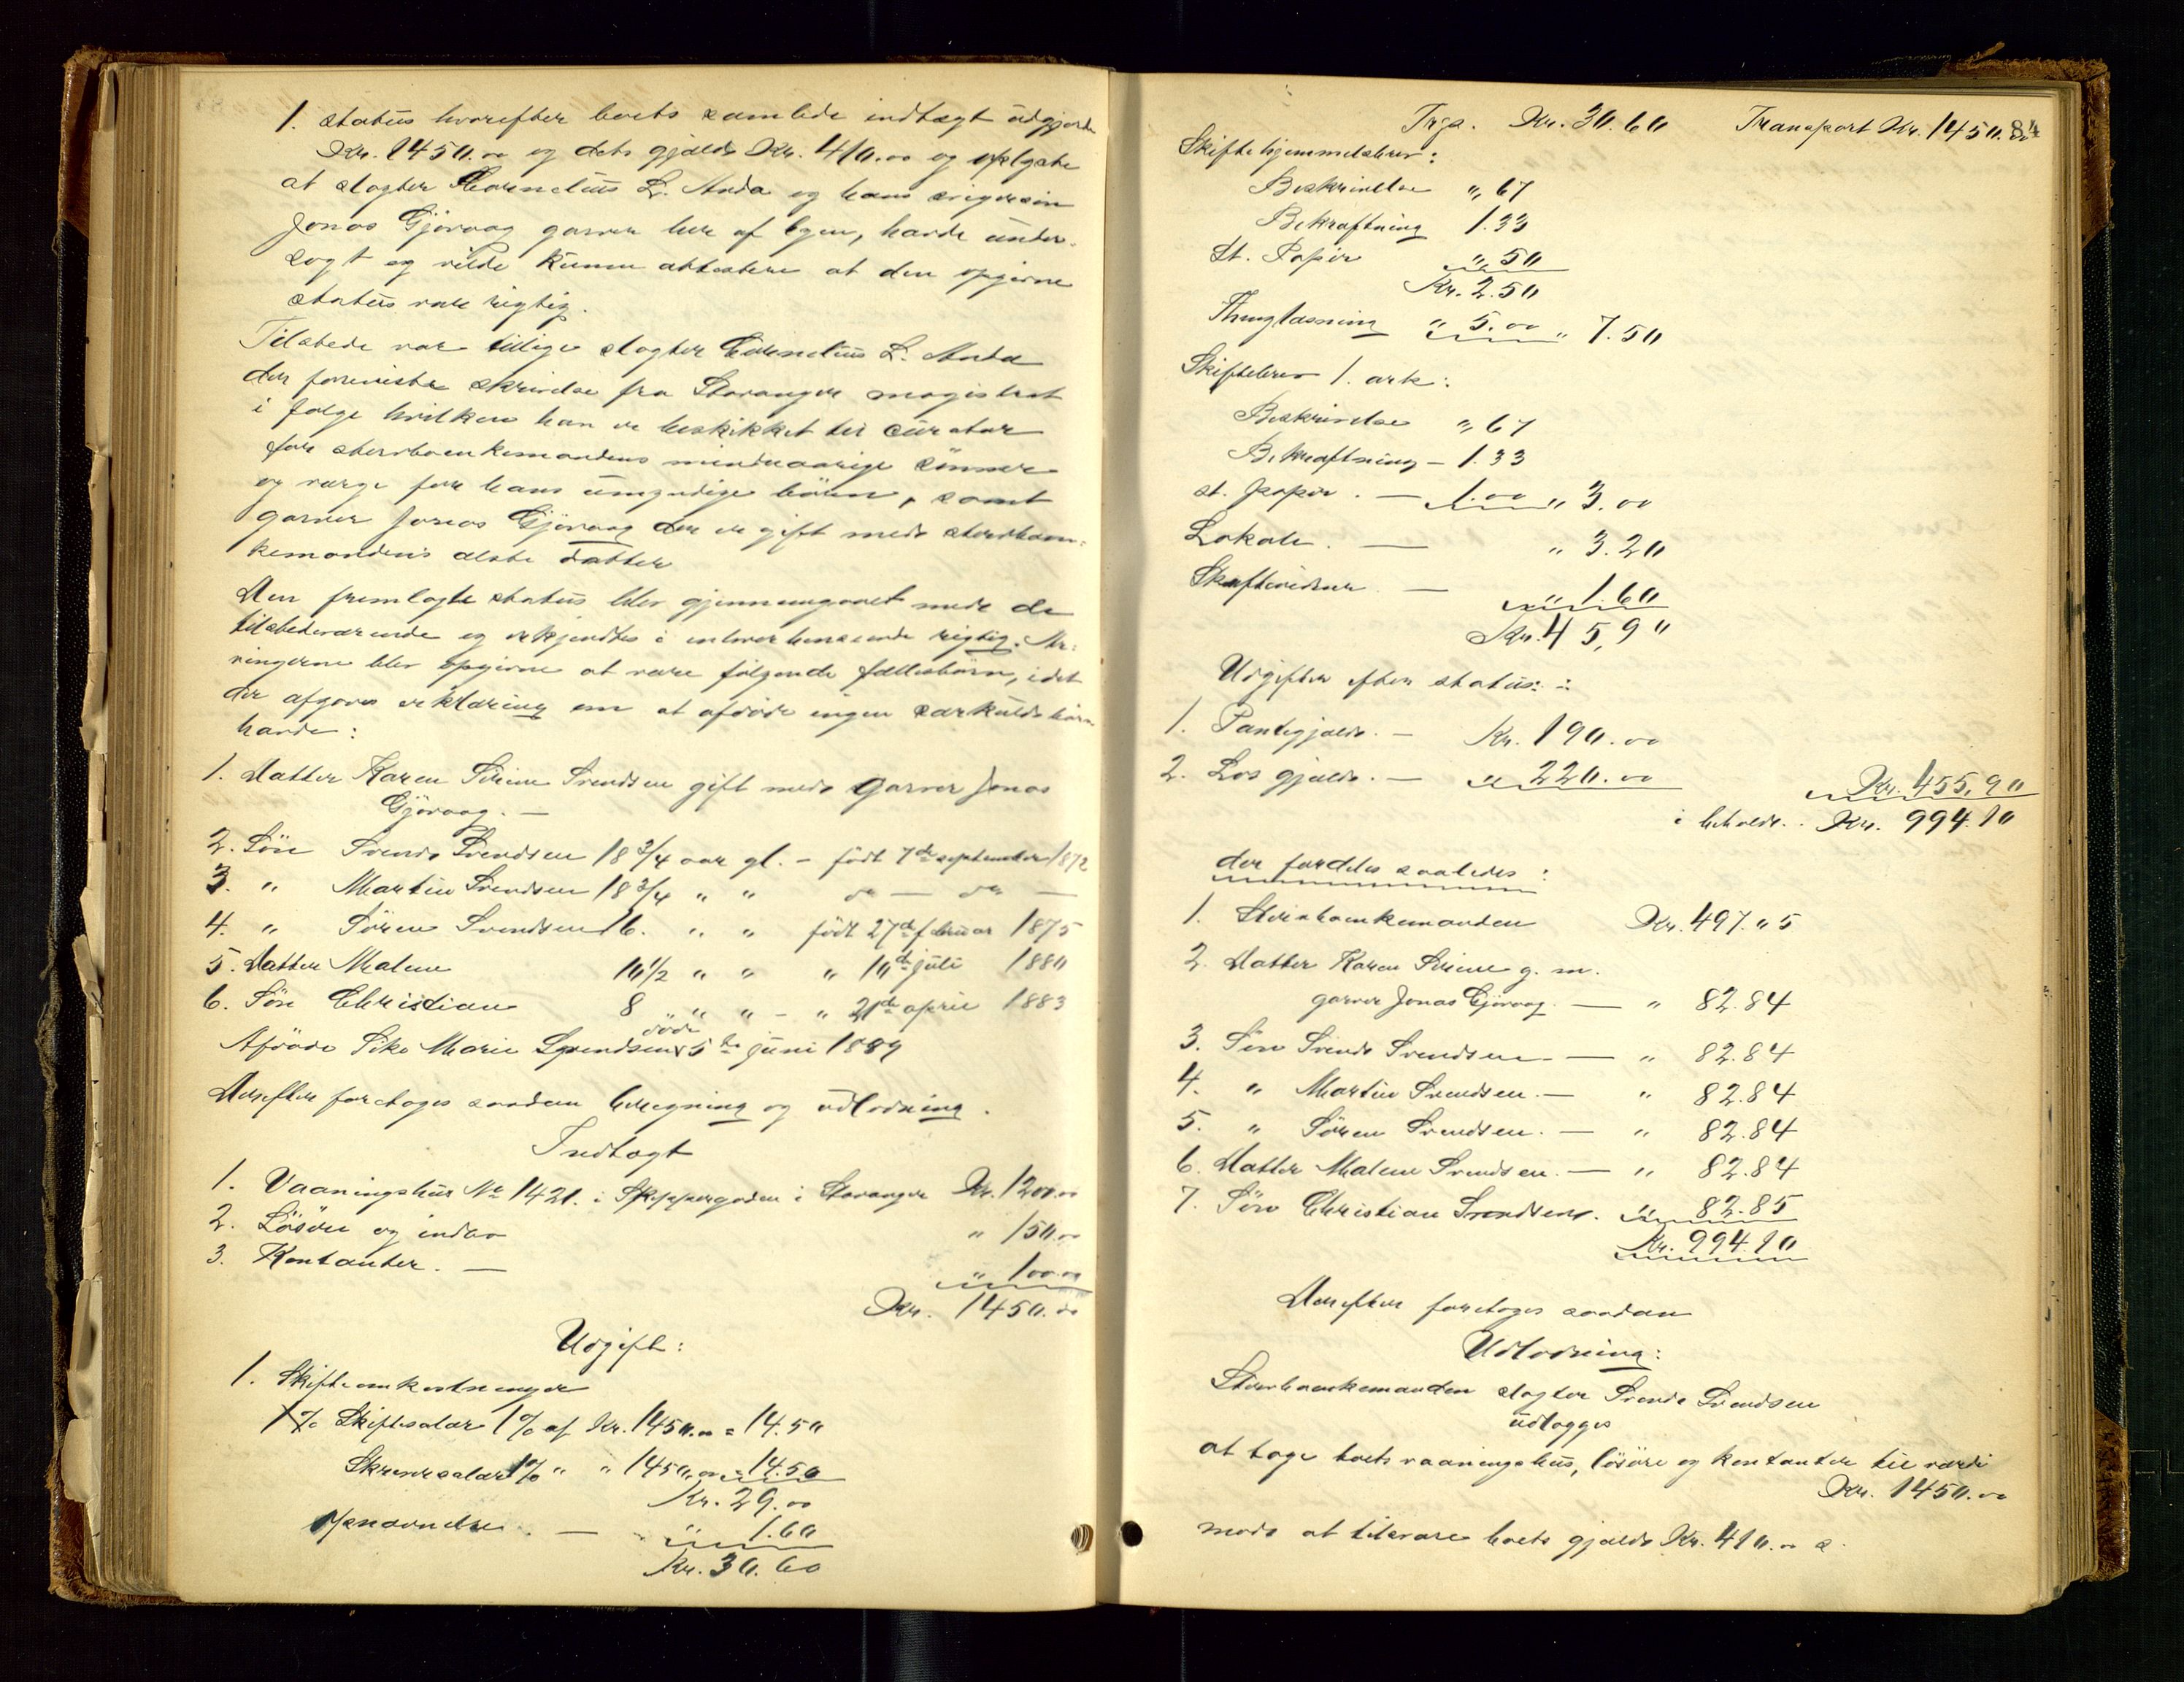 1. status hvorefter boets samlede indtægt udgjorde
Kr. 1450.00 og dets gjæld Kr. 410.00 og oplyste
at slagter Cornelius L. Anda og hans svigersøn
Jonas Gjøraag garver her af byen, havde under-
søgt og vilde kunne attestere at den opgivne
status var rigtig.
Tilstede var tillige slagter Cornelius L. Anda
der foreviste skrivelse fra Stavanger magistrat
i følge hvilken han er beskikket til curator
for sterboenkemandens mindreaarige sønner
og værge for hans umyndige børn, samt
garver Jonas Gjøraag der er gift med sterboen-
kemandens ælste datter
Den fremlagte status blev gjennemgaaet med de
tilstedeværende og erkjendtes i enhver henseende rigtig. Ar-
vingerne blev opgivne at være følgende fællesbørn, idet
der afgaves erklæring om at afdøde ingen særkuldsbørn
havde:
1. Datter Karen Sirine Svendsen gift med garver Jonas
Gjøraag. —
2. Søn Svend Svendsen 18 3/4 aar gl. - født 7de september 1872
3. " Martin Svendsen 18 3/4 " " do — do —
4. " Søren Svendsen 16. " " født 27de februar 1875
5. Datter Malene 10 1/2 " " " 10de juli 1880
6. Søn Christian 8 " " - " 21de april 1883
Afdøde Marie Svendsen døde 5te juni 1889
Derefter foretages saadan beregning og udlodning.
Indtægt
1. Vaaningshus No 1421. i Skippergaden i Stavanger Kr. 1200.00
2. Løsøre og indbo " 150.00
3. Kontanter. — " 100.00
Kr. 1450.00
Udgift:
1. Skifteomkostninger
1% Skiftesalær 1% af Kr. 1450.00 = 14.50
Skriversalær 1% " " 1450.00 = 14.50
Kr. 29.00
Opnævnelse. — " 1.60
Kr. 30.60
84
Trsp. Kr. 30.60 Transport Kr. 1450.00
Skiftehjemmelsbrev:
Beskrivelse ",67
Bekræftning 1.33
St. Papir ",50
Kr. 2.50
Thinglæsning " 5.00 " 7.50
Skiftebrev 1. ark:
Beskrivelse ",67
Bekræftning — 1.33
st. papir. — 1.00 " 3.00
Lokale. — " 3.20
— " 1.60
Kr. 45,9"
Udgifter efter status: :
1. Pantegjæld. — Kr. 190.00
2. Løs gjæld. — " 220.00 Kr. 455,90
i behold.. Kr. 994.10
der fordeles saaledes:
1. Sterboenkemanden Kr. 497."5
2. Datter Karen Sirine g. m.
garver Jonas Gjøraag. — " 82.84
3. Søn Svend Svendsen — " 82.84
4. " Martin Svendsen. — " 82.84
5. " Søren Svendsen. — " 82.84
6. Datter Malene Svendsen. — " 82.84
7. Søn Christian Svendsen. " 82.85
Kr. 994.10
Derefter foretages saadan
Udlodning:
Sterboenkemanden slagter Svend Svendsen
udlægges
at tage boets vaaningshus, løsøre og kontanter til værdi
Kr. 1450.00
mod at tilsvare boets gjæld Kr. 410.00